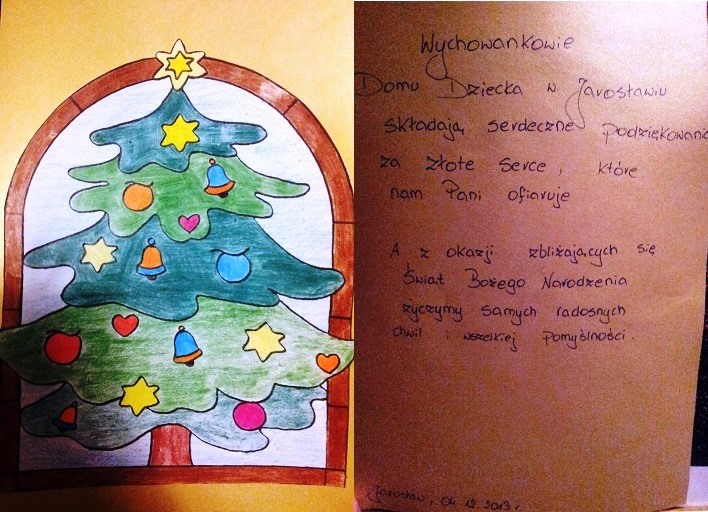 Wychowankowie
Domu Dziecka w Jarosławiu
składają serdeczne podziękowania
za złote serce, które
nam Pani ofiaruje
A z okazji zbliżających się
Świąt Bożego Narodzenia
życzymy samych radosnych
chwil i wszelkiej pomyślności.
Jarosław, 04.12.2013r.